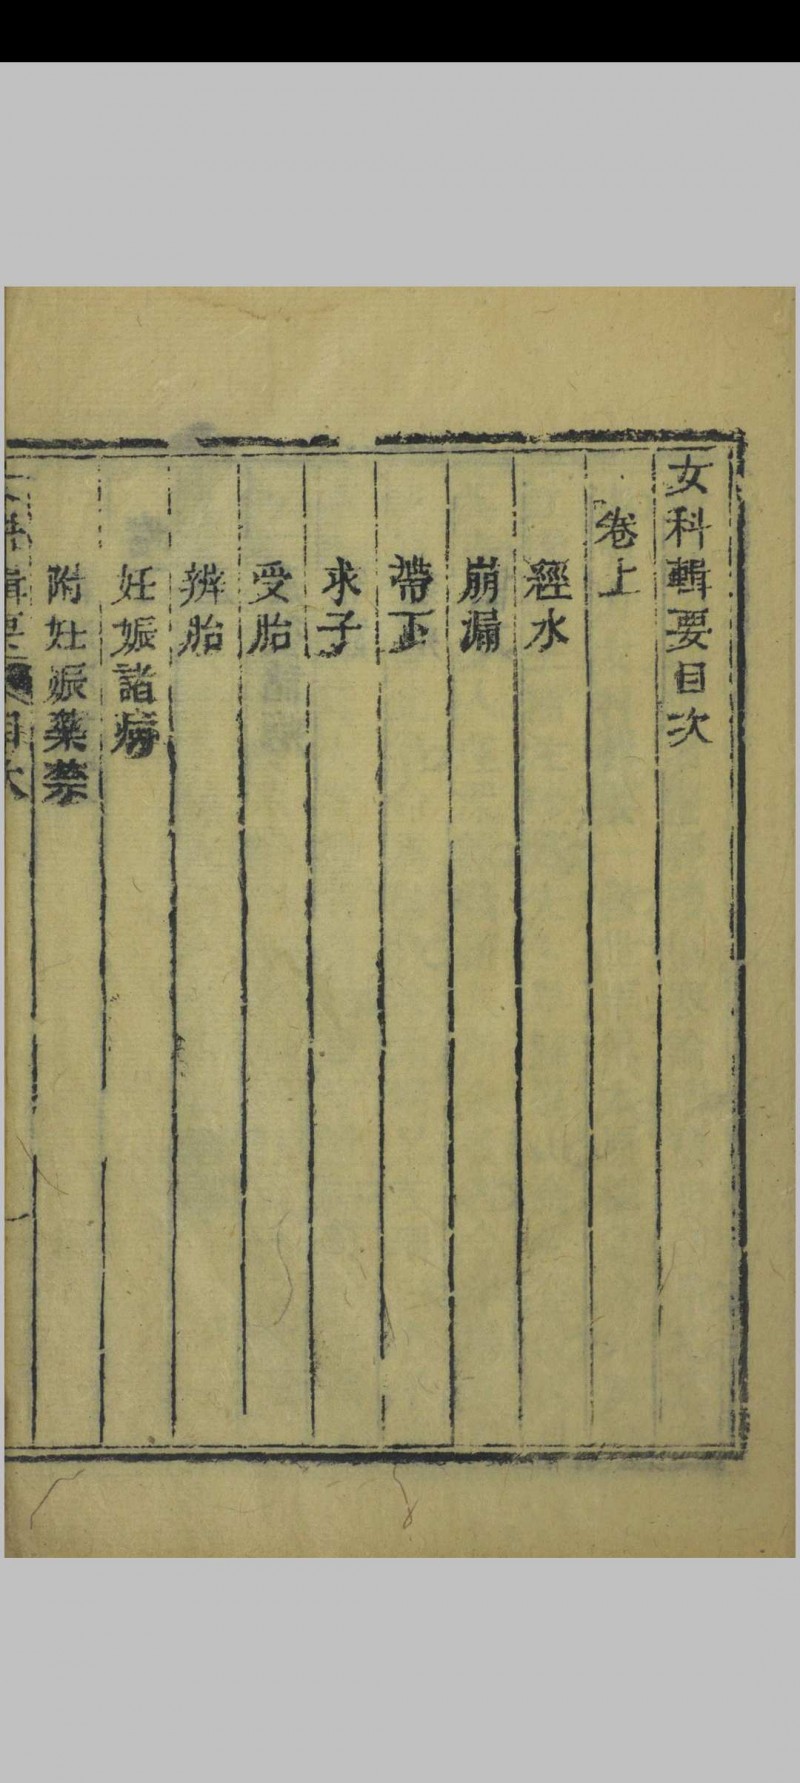 女科輯要目次
卷上
經水
崩漏
帶下
求子
受胎
辨胎
妊娠諸病
附妊娠藥禁